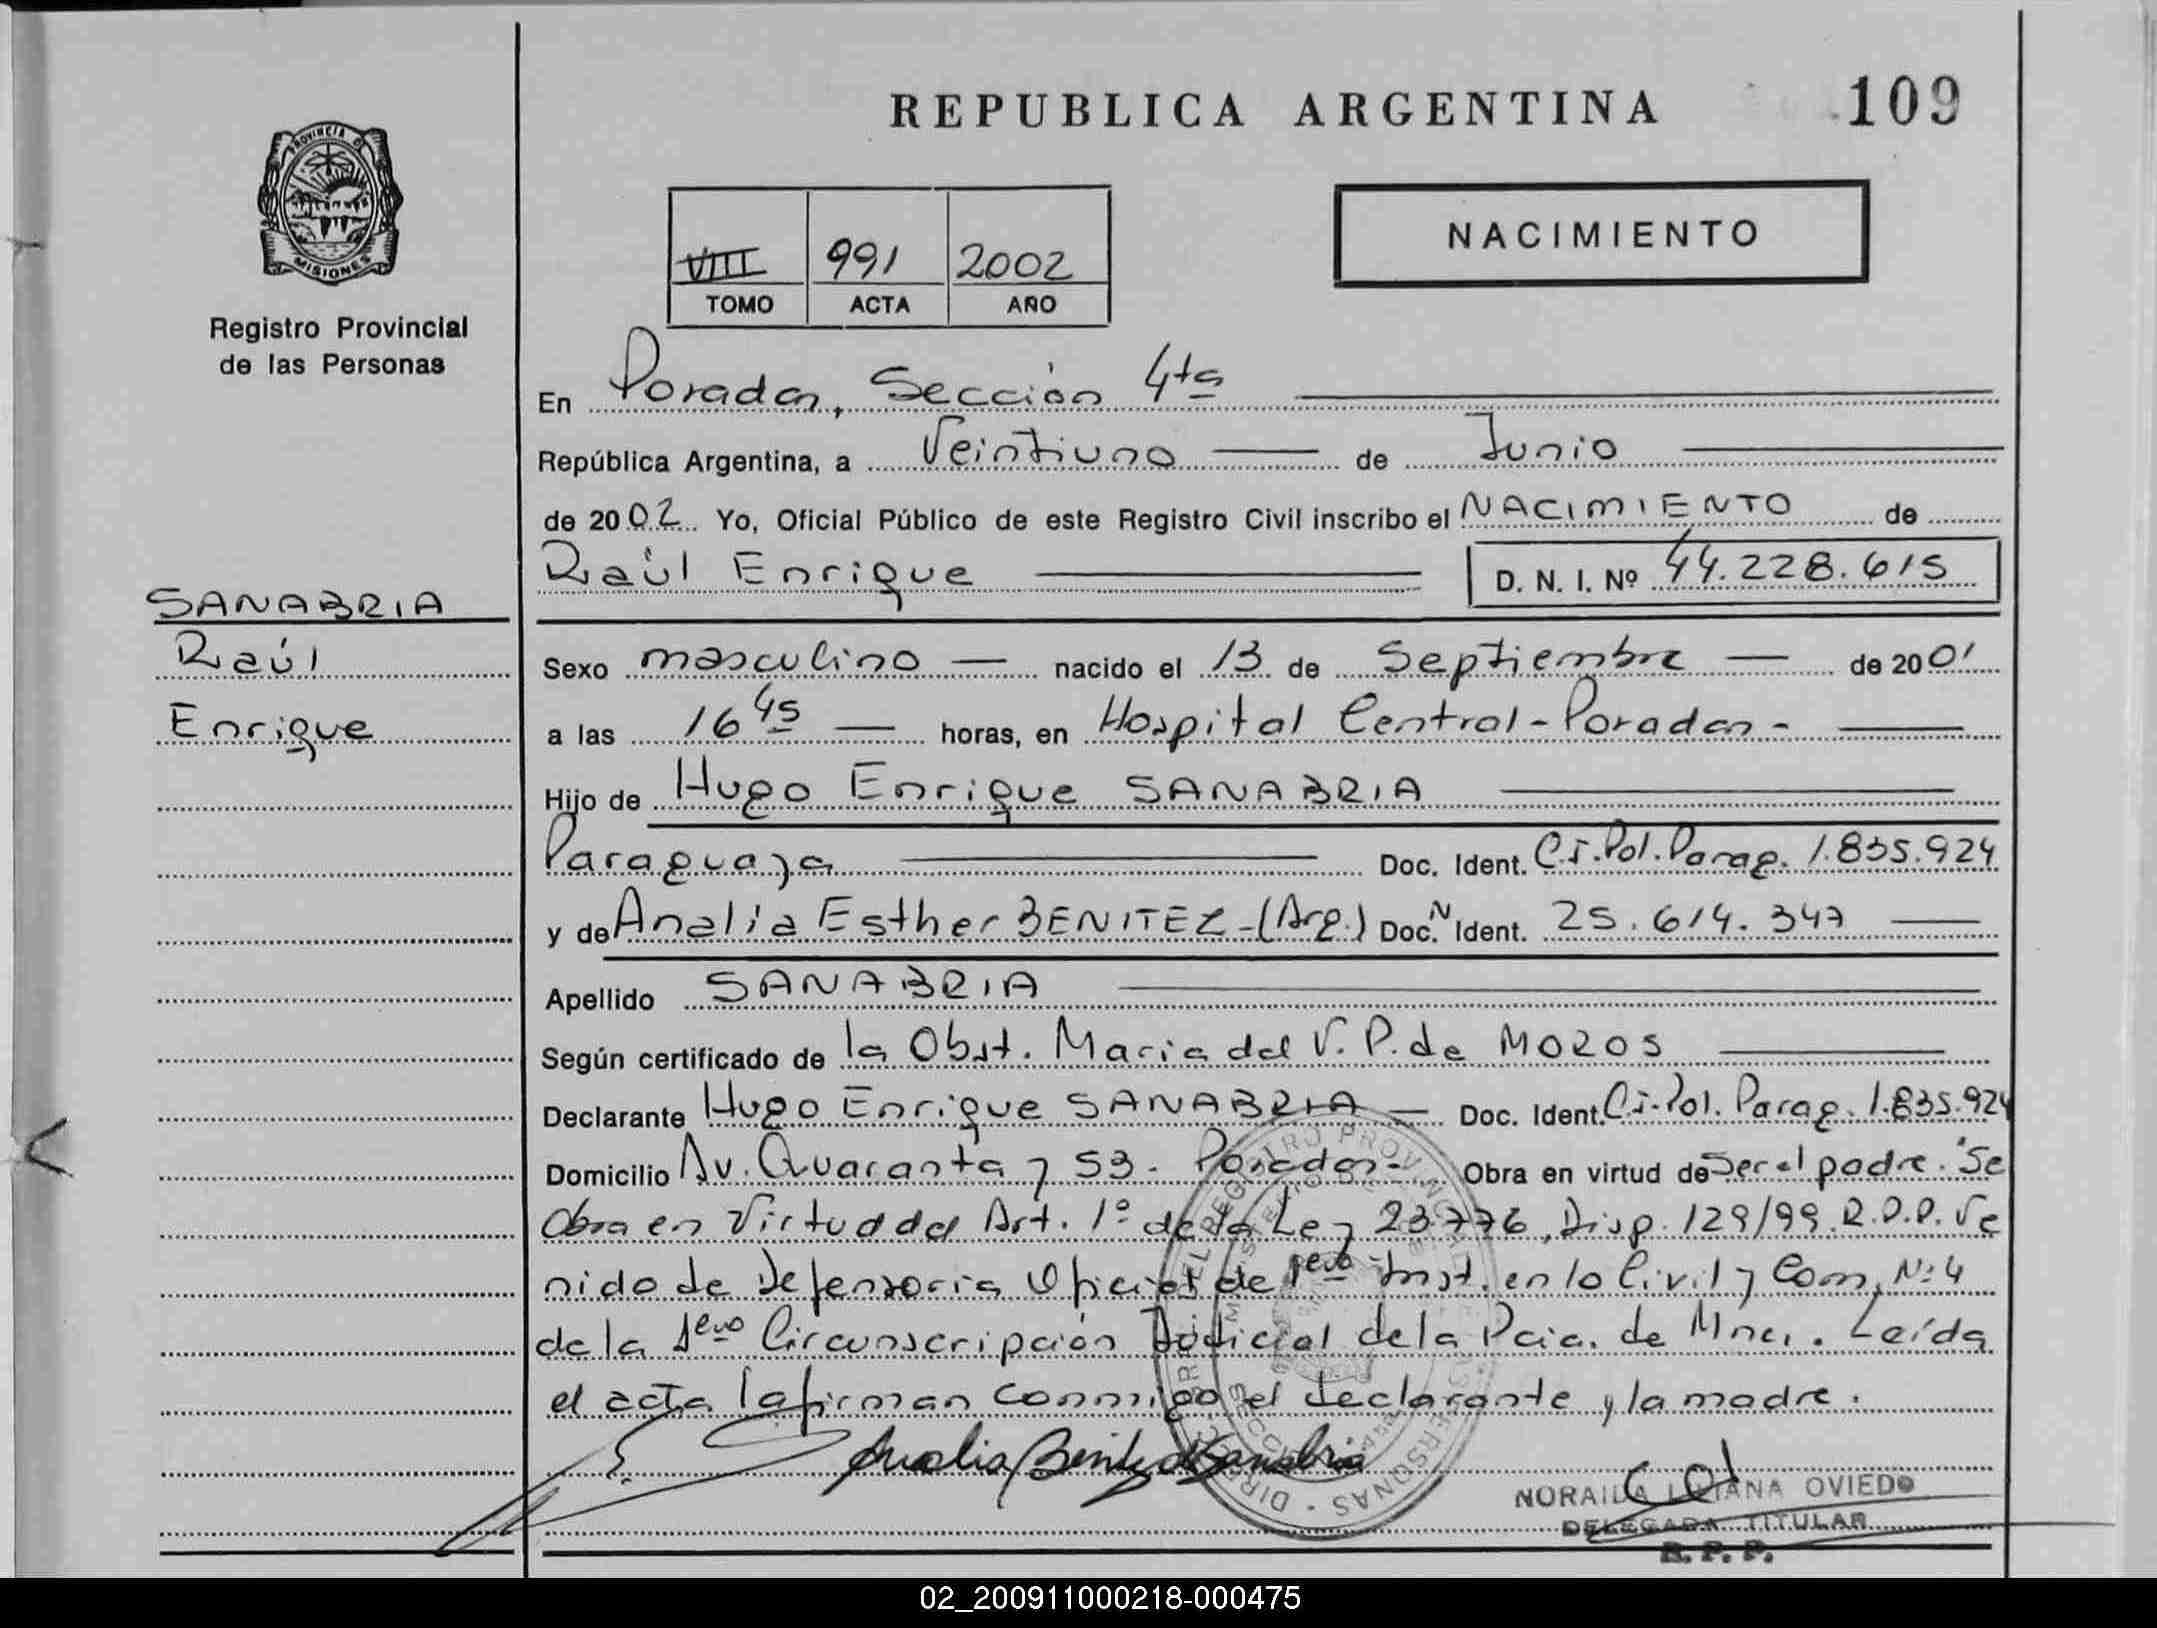 REPUBLICA ARGENTINA
109
PROVINCIA DE
MISIONES
Registro Provincial
de las Personas
VIII 991 2002
TOMO ACTA AÑO
NACIMIENTO
En Posadas, Sección 4ta
República Argentina, a Veintiuno de Junio
de 2002 Yo, Oficial Público de este Registro Civil inscribo el NACIMIENTO de
Raúl Enrique D. N. I. Nº 44.228.615
SANABRIA
Raúl
Enrique
Sexo masculino nacido el 13 de Septiembre de 2001
a las 16 45 horas, en Hospital Central - Posadas -
Hijo de Hugo Enrique SANABRIA
Paraguaya Doc. Ident. C.I. Pol. Parag. 1.835.924
y de Analía Esther BENITEZ - (Arg.) Doc. N Ident. 25.614.347
Apellido SANABRIA
Según certificado de la Obst. Maria del V. P. de MOROS
Declarante Hugo Enrique SANABRIA Doc. Ident. C.I. Pol. Parag. 1.835.924
Domicilio Av. Quaranta y 53 - Posadas - Obra en virtud de Ser el padre. "Se
Obra en Virtud del Art. 1º de la Ley 23.776, Disp. 129/99 R.P.P. Ve
nido de Defensoria Oficial de 1era Inst. en lo Civil y Com. Nº 4
de la 1era Circunscripción Judicial de la Pcia. de Mnes. Leída
el acta la firman conmigo el declarante y la madre.
Analia Benitez de Sanabria
NORAILDA LILIANA OVIEDO
DELEGADA TITULAR
R. P. P.
02_200911000218-000475